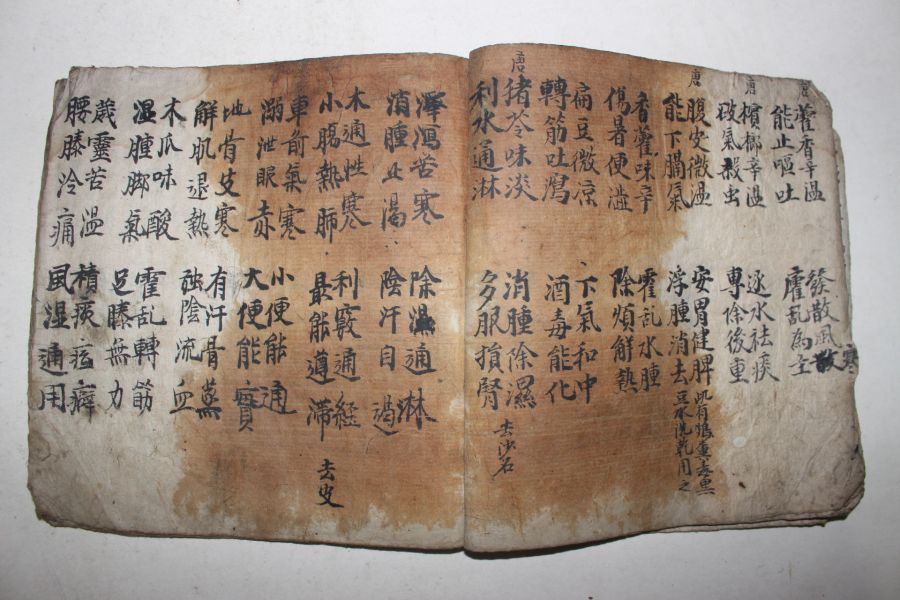 唐
藿香辛温
能止嘔吐
發散風寒
霍乱為主
唐
檳榔辛温
破氣殺虫
逐水祛痰
專除後重
唐
腹皮微温
能下膈氣
安胃健脾
浮腫消去
豆水洗乾用之
香薷味辛
傷暑便澁
霍乱水腫
除煩解熱
扁豆微凉
轉筋吐瀉
下氣和中
酒毒能化
唐
猪苓味淡
利水通淋
消腫除濕
多服損腎
去沙石
澤瀉苦寒
消腫止渴
除濕通淋
陰汗自遏
木通性寒
小腸熱肺
利竅通經
最能導滯
去皮
車前氣寒
溺泄眼赤
小便能通
大便能實
地骨皮寒
解肌退熱
有汗骨蒸
強陰流血
木瓜味酸
湿腫脚氣
霍乱轉筋
足膝無力
葳靈苦温
腰膝冷痛
積痰痃癖
風湿通用